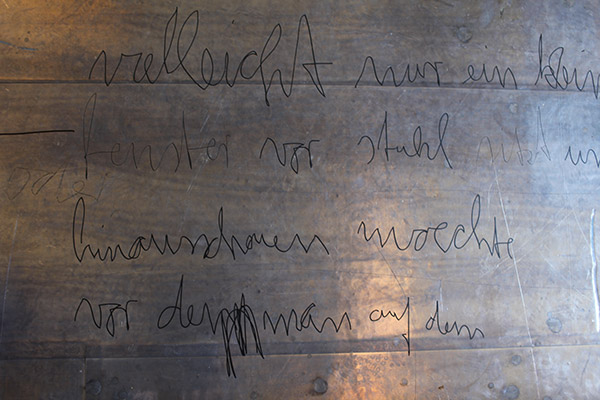 vielleicht nur ein klein
fenster vor stuhl sitzt un
hinausschauen moechte
vor dem man auf dem